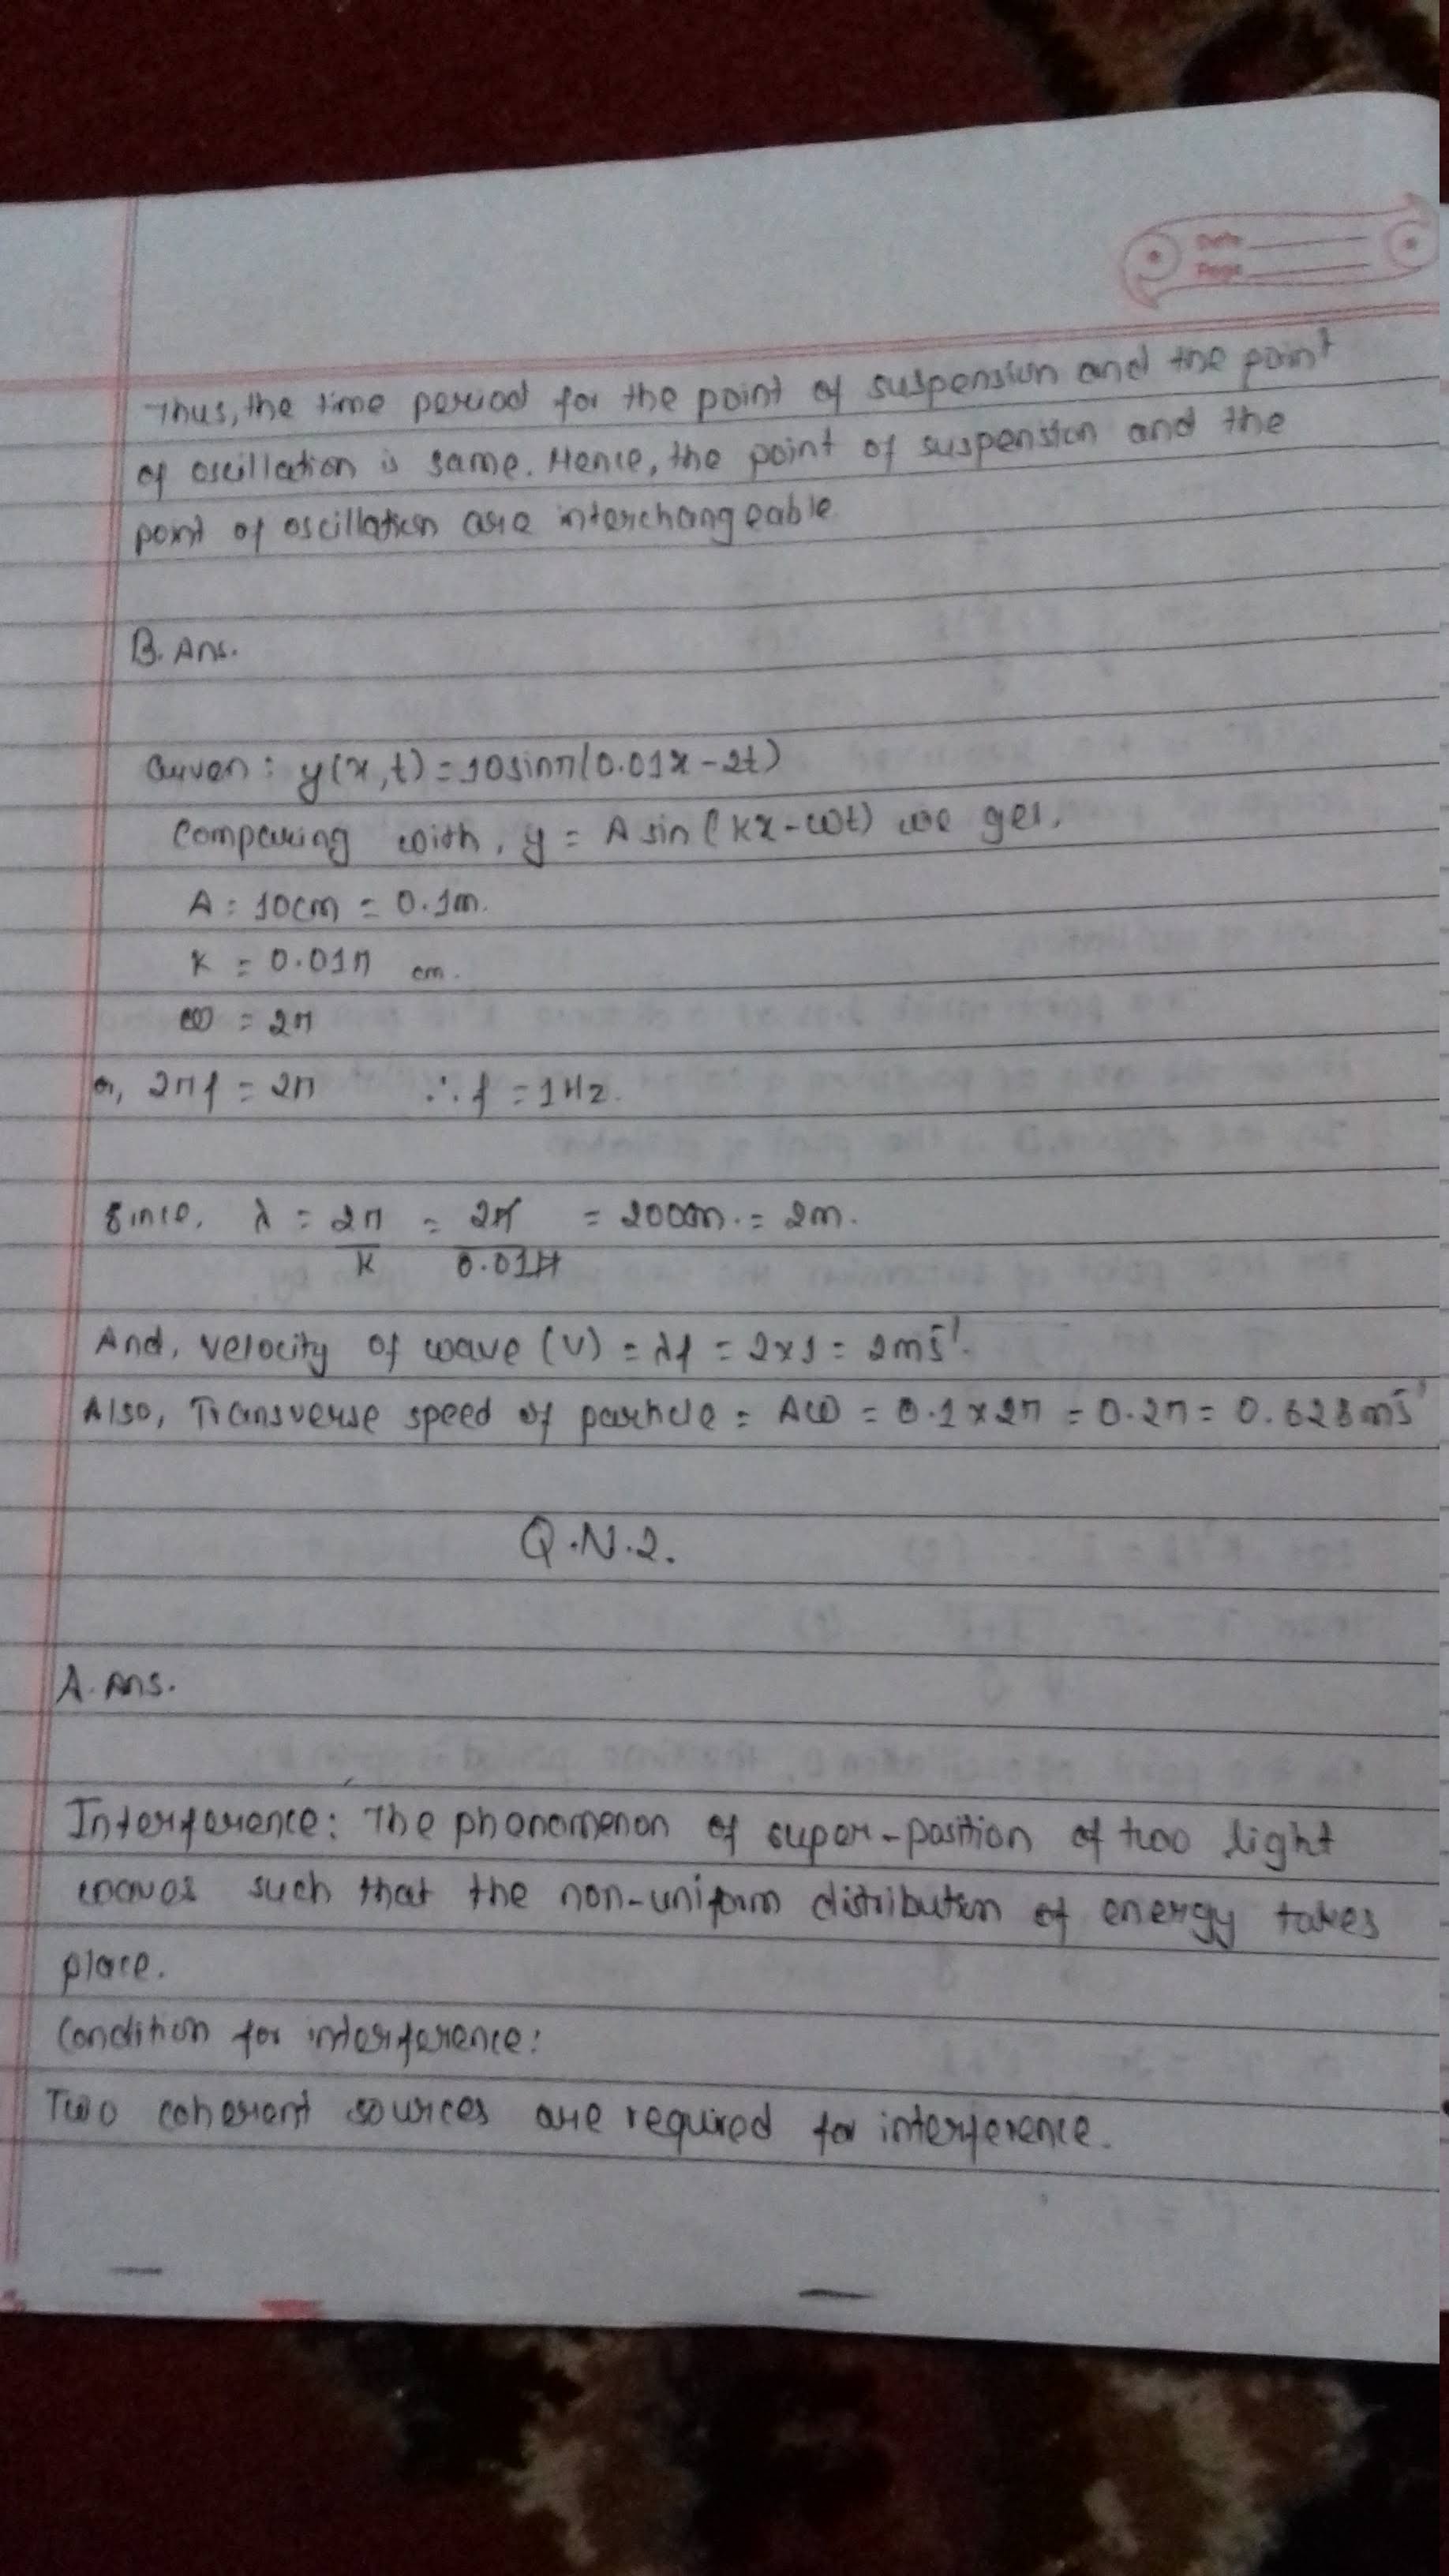 Date
Page
Thus, the time period for the point of suspension and the point
of oscillation is same. Hence, the point of suspension and the
point of oscillation are interchangeable.
B. Ans.
Given: y(x,t) = 10sinπ(0.01x - 2t)
Comparing with, y = A sin(kx - ωt) we get,
A = 10cm = 0.1m.
K = 0.01π cm.
ω = 2π
or, 2πf = 2π ∴ f = 1Hz.
Since, λ = 2π/K = 2π/0.01π = 200cm. = 2m.
And, velocity of wave (v) = λf = 2x1 = 2ms⁻¹.
Also, Transverse speed of particle = Aω = 0.1x2π = 0.2π = 0.628ms⁻¹
Q.N.2.
A. Ans.
Interference: The phenomenon of super-position of two light
waves such that the non-uniform distribution of energy takes
place.
Condition for interference:
Two coherent sources are required for interference.